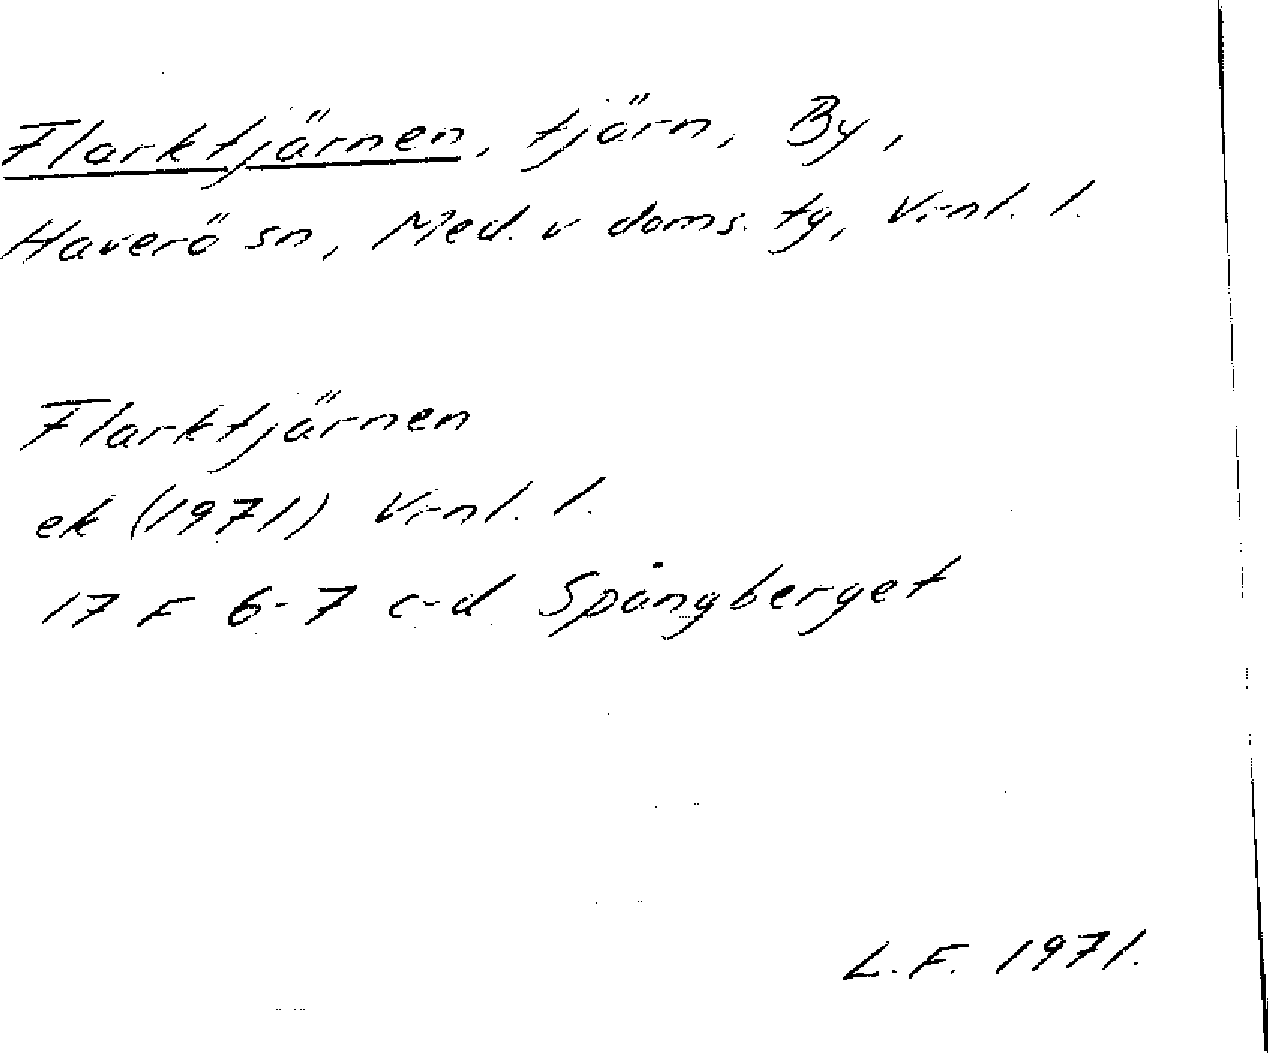 Flarktjärnen, tjärn, By,
Haverö sn, Med. v doms. tg, V-nl. l.
Flarktjärnen
ek (1971) V-nl. l.
17 F 6-7 c-d Spångberget
L.F. 1971.